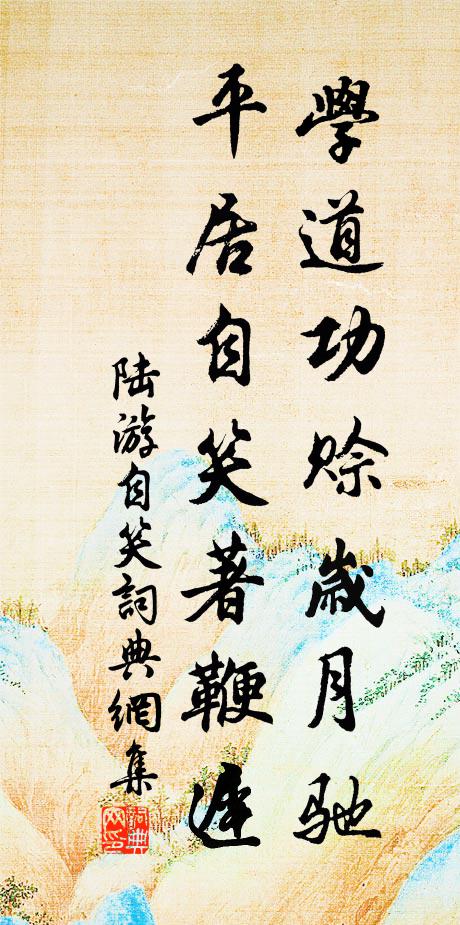 學道功賒歲月馳
平居自笑著鞭遲
陆游自笑詞典網集
詞典
网印